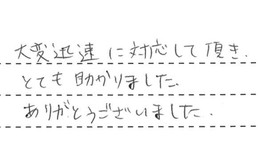 大変迅速に対応して頂き.
とても助かりました.
ありがとうございました.